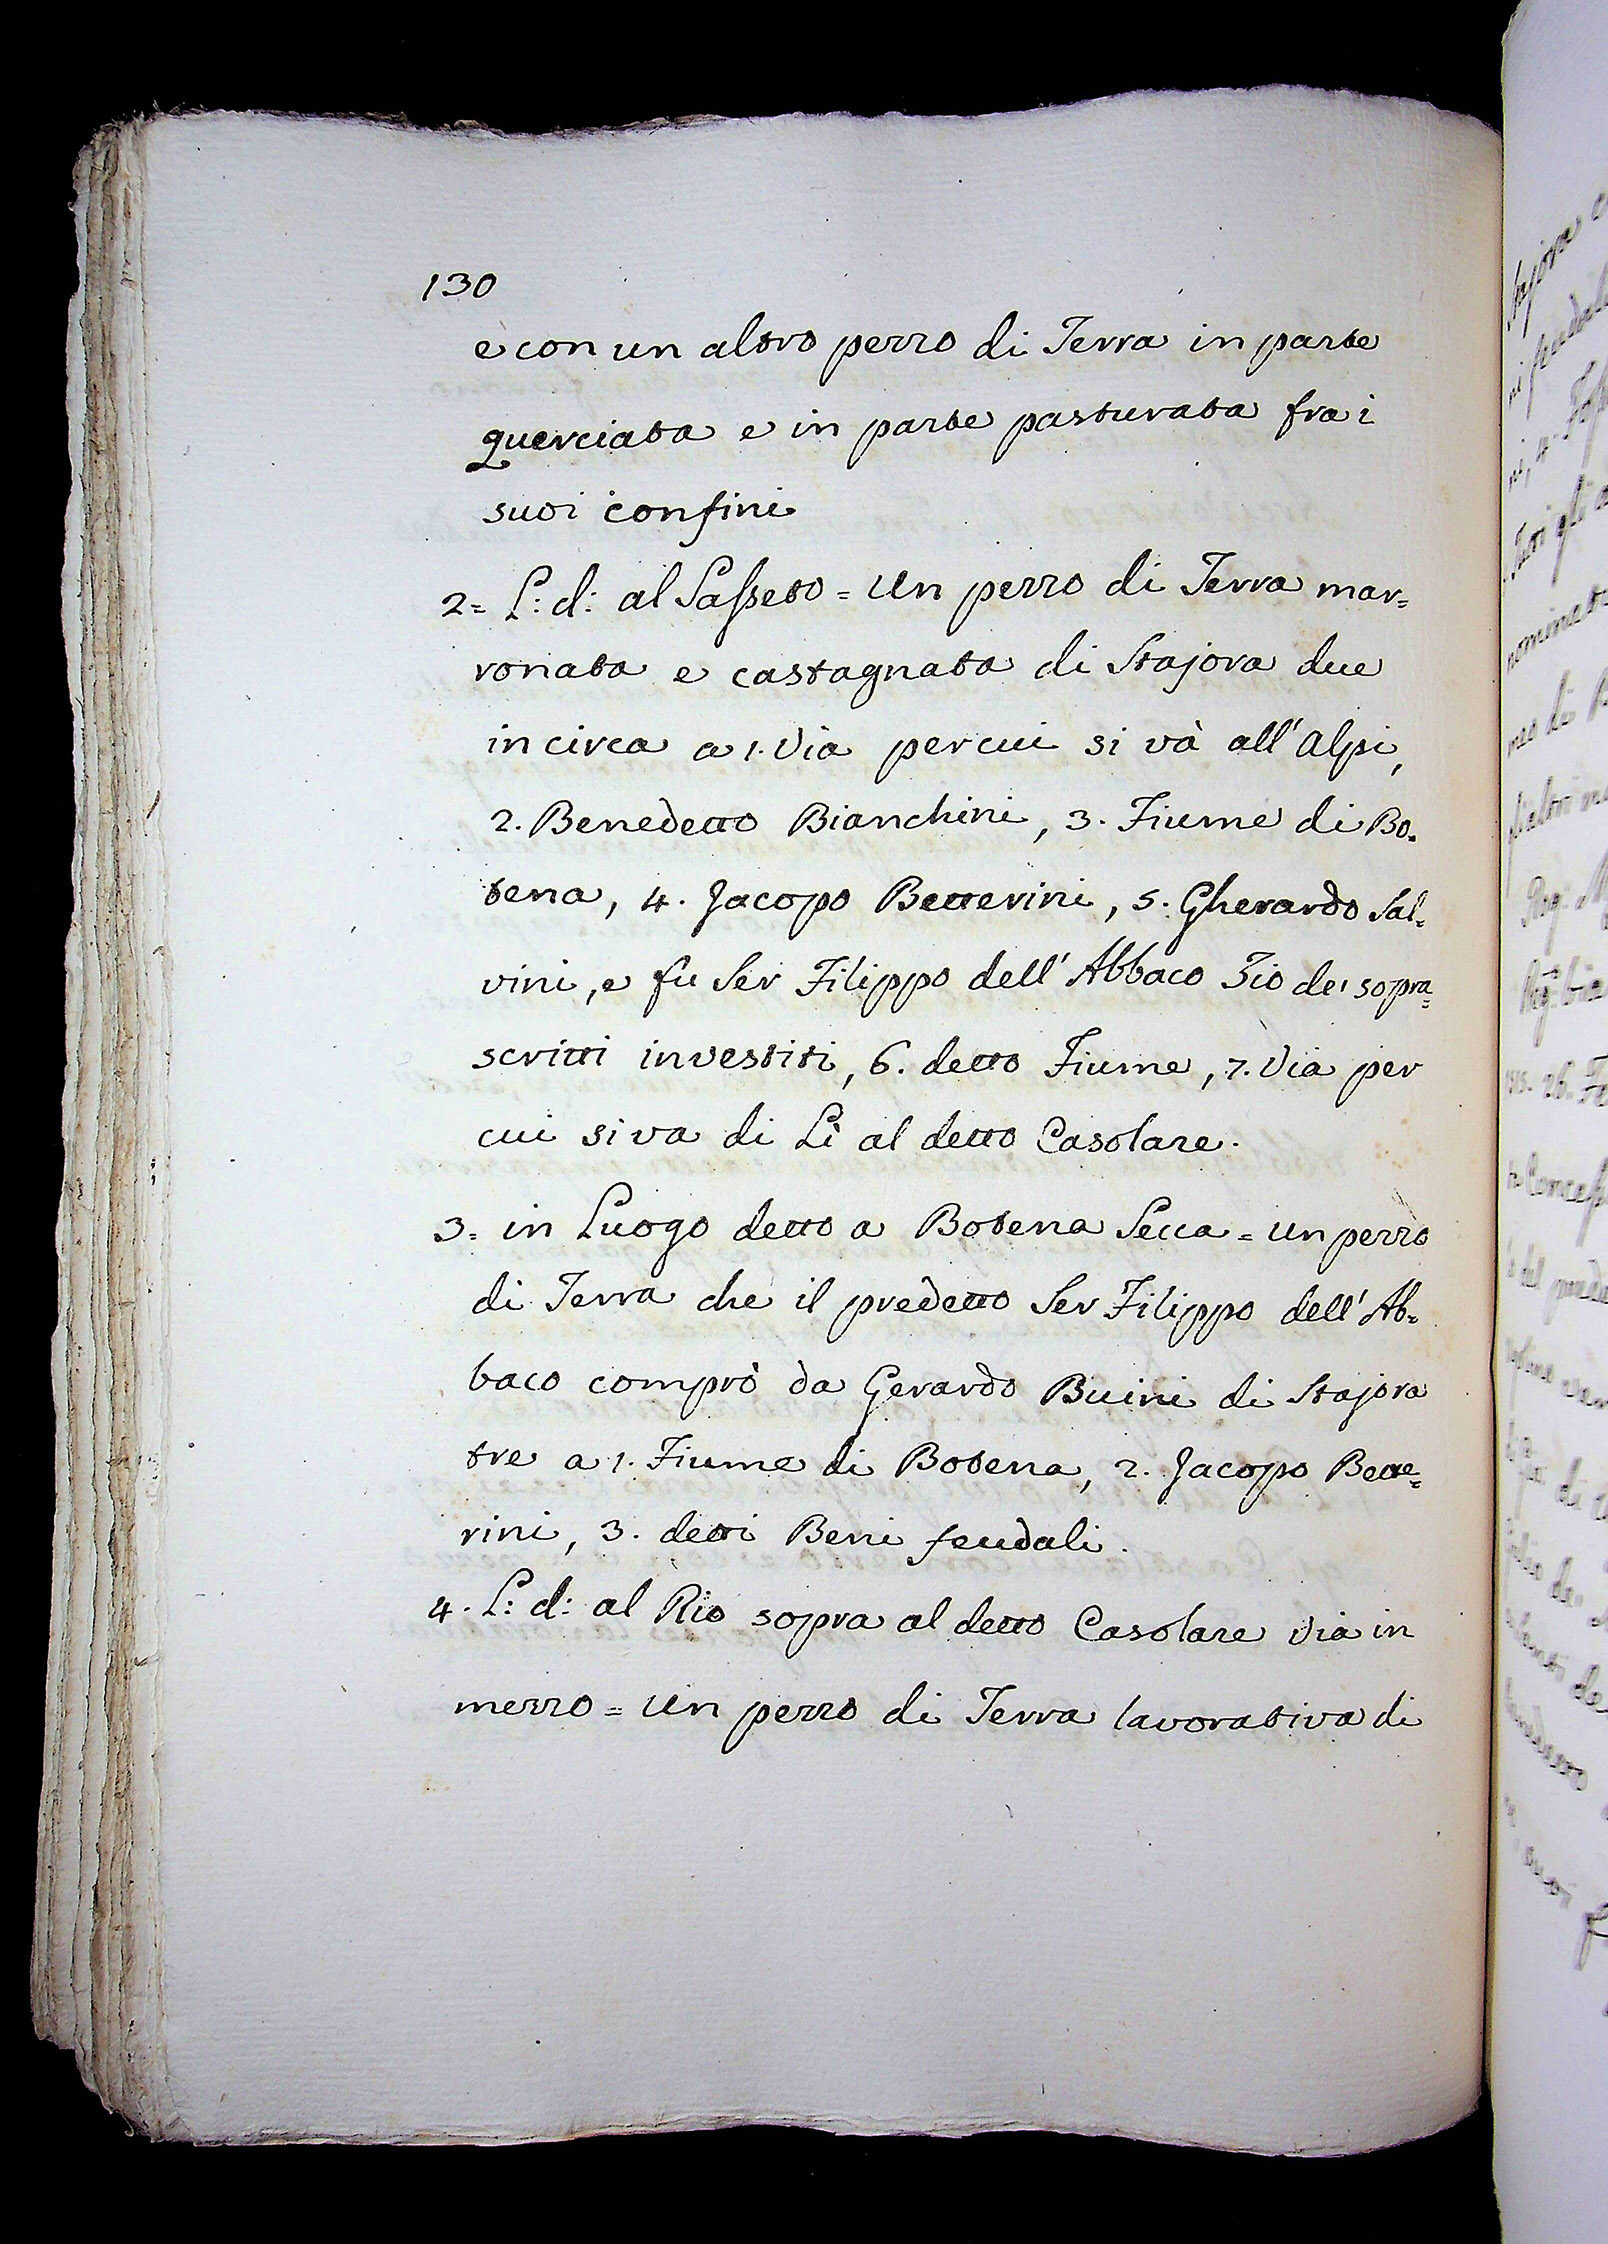 130
e con un altro pezzo di Terra in parte
querciata e in parte pasturata fra i
suoi confini
2= L: d: al Sasseto = Un pezzo di Terra mar=
ronata e castagnata di Stajora due
in circa a 1. Via per cui si và all' Alpi,
2. Benedetto Bianchini, 3. Fiume di Bo=
tena, 4. Jacopo Betterini, 5. Gherardo Sal=
vini, e fu Ser Filippo dell' Abbaco Zio de' sopra=
scritti investiti, 6. detto Fiume, 7. Via per
cui si va di Lì al detto Casolare.
3= in Luogo detto a Botena Secca = un pezzo
di Terra che il predetto Ser Filippo dell' Ab=
baco comprò da Gerardo Buini di Stajora
tre a 1. Fiume di Botena, 2. Jacopo Bette=
rini, 3. detti Beni feudali.
4. L: d: al Rio sopra al detto Casolare Via in
mezzo = Un pezzo di Terra lavorativa di